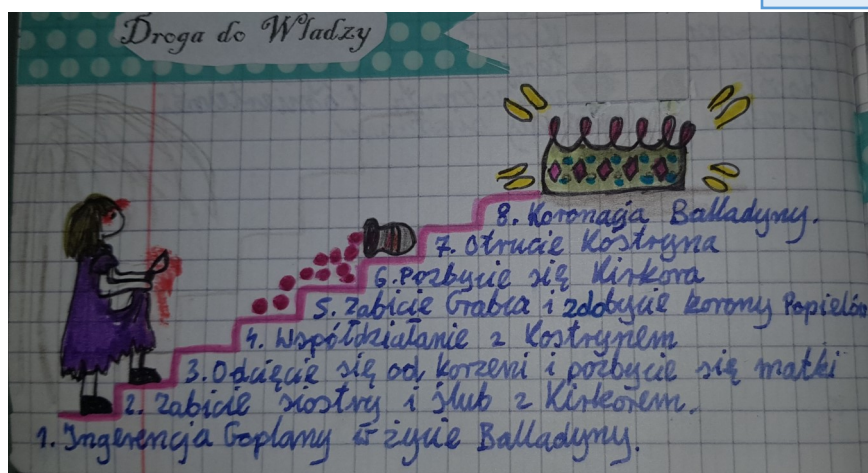 Droga do Władzy
8. Koronacja Balladyny.
7. Otrucie Kostryna
6. Pozbycie się Kirkora
5. Zabicie Grabca i zdobycie korony Popielów
4. Współdziałanie z Kostrynem
3. Odcięcie się od korzeni i pozbycie się matki
2. Zabicie siostry i ślub z Kirkorem.
1. Ingerencja Goplany w życie Balladyny.